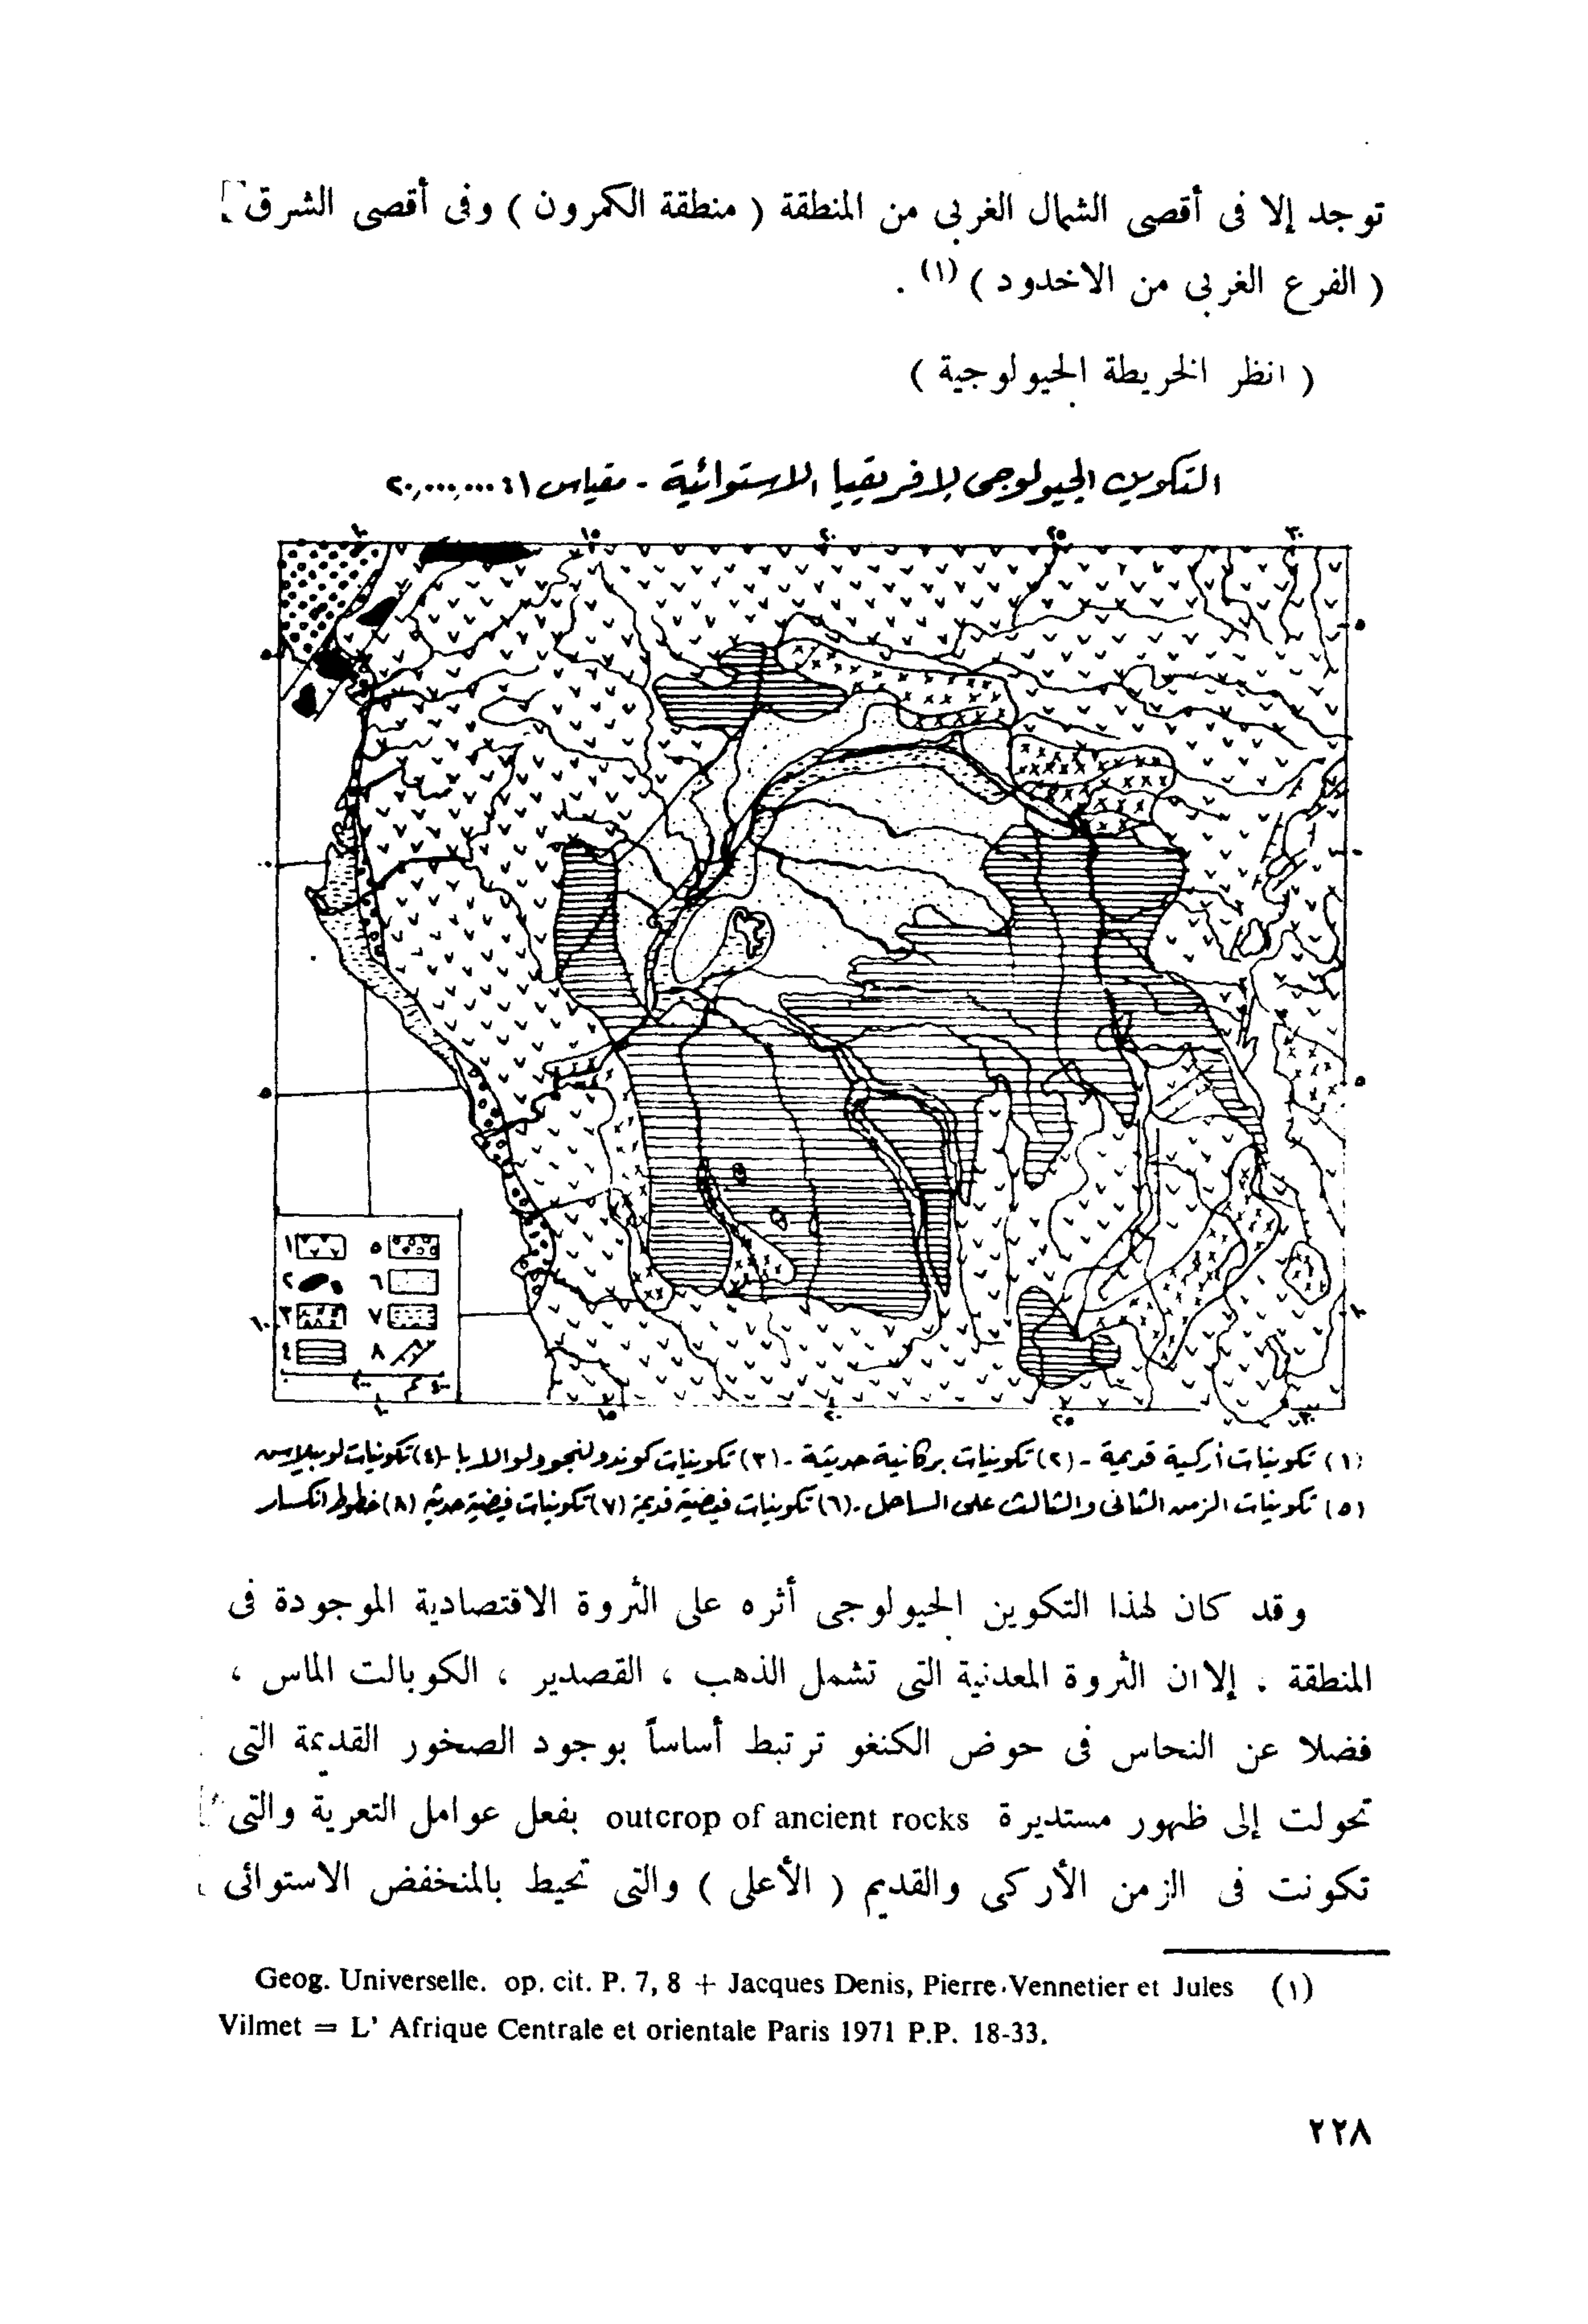 توجد إلا فى أقصى الشمال الغربى من المنطقة ( منطقة الكمرون ) وفى أقصى الشرق
( الفرع الغربى من الاخدود ) (١) .
( انظر الخريطة الجيولوجية )
التكوين الجيولوجى لإفريقيا الاستوائية - مقياس ١ : ٢٠,٠٠٠,٠٠٠
١٠ ١٥ ٢٠ ٢٥ ٣٠
٥ ٥
٠ ٠
٥ ٥
١ ٥
٢ ٦
١٠ ٣ ٧ ١٠
٤ ٨
٠ ٢٠٠ ٤٠٠ كم
١٠ ١٥ ٢٠ ٢٥ ٣٠
(١) تكوينات أركية قديمة - (٢) تكوينات بركانية حديثة - (٣) تكوينات كوندولنجو ولوالابا - (٤) تكوينات لوبيلاس
(٥) تكوينات الزمن الثانى والثالث على الساحل - (٦) تكوينات فيضية قديمة (٧) تكوينات فيضية حديثة (٨) خطوط انكسار
وقد كان لهذا التكوين الجيولوجى أثره على الثروة الاقتصادية الموجودة فى
المنطقة . إلا ان الثروة المعدنية التى تشمل الذهب ، القصدير ، الكوبالت الماس ،
فضلا عن النحاس فى حوض الكنغو ترتبط أساساً بوجود الصخور القديمة التى
تحولت إلى ظهور مستديرة outcrop of ancient rocks بفعل عوامل التعرية والتى
تكونت فى الزمن الأركى والقديم ( الأعلى ) والتى تحيط بالمنخفض الاستوائى
(١) Geog. Universelle. op. cit. P. 7, 8 + Jacques Denis, Pierre Vennetier et Jules
Vilmet = L' Afrique Centrale et orientale Paris 1971 P.P. 18-33.
٢٢٨